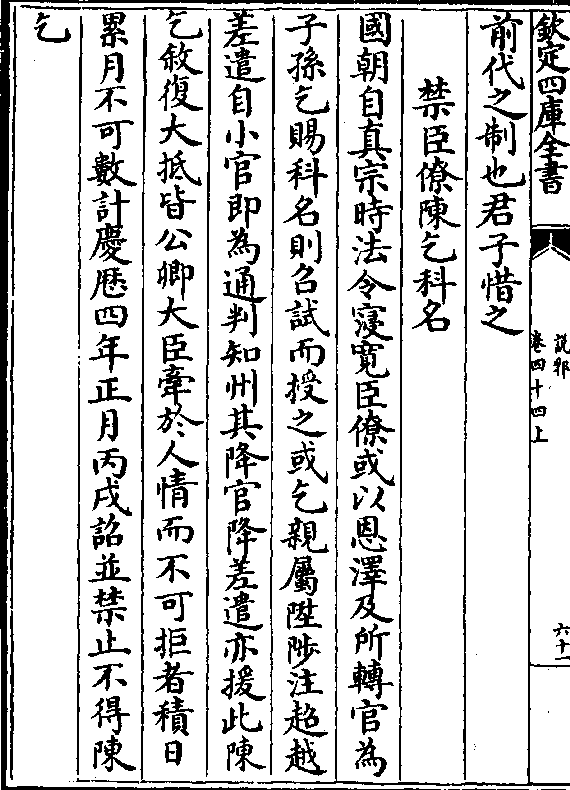 欽定四庫全書
說郛
卷四十四上
六十一
前代之制也君子惜之
禁臣僚陳乞科名
國朝自真宗時法令寖寛臣僚或以恩澤及所轉官為
子孫乞賜科名則召試而授之或乞親屬陞陟注超越
差遣自小官即為通判知州其降官降差遣亦援此陳
乞敘復大抵皆公卿大臣牽於人情而不可拒者積日
累月不可數計慶厯四年正月丙戌詔並禁止不得陳
乞